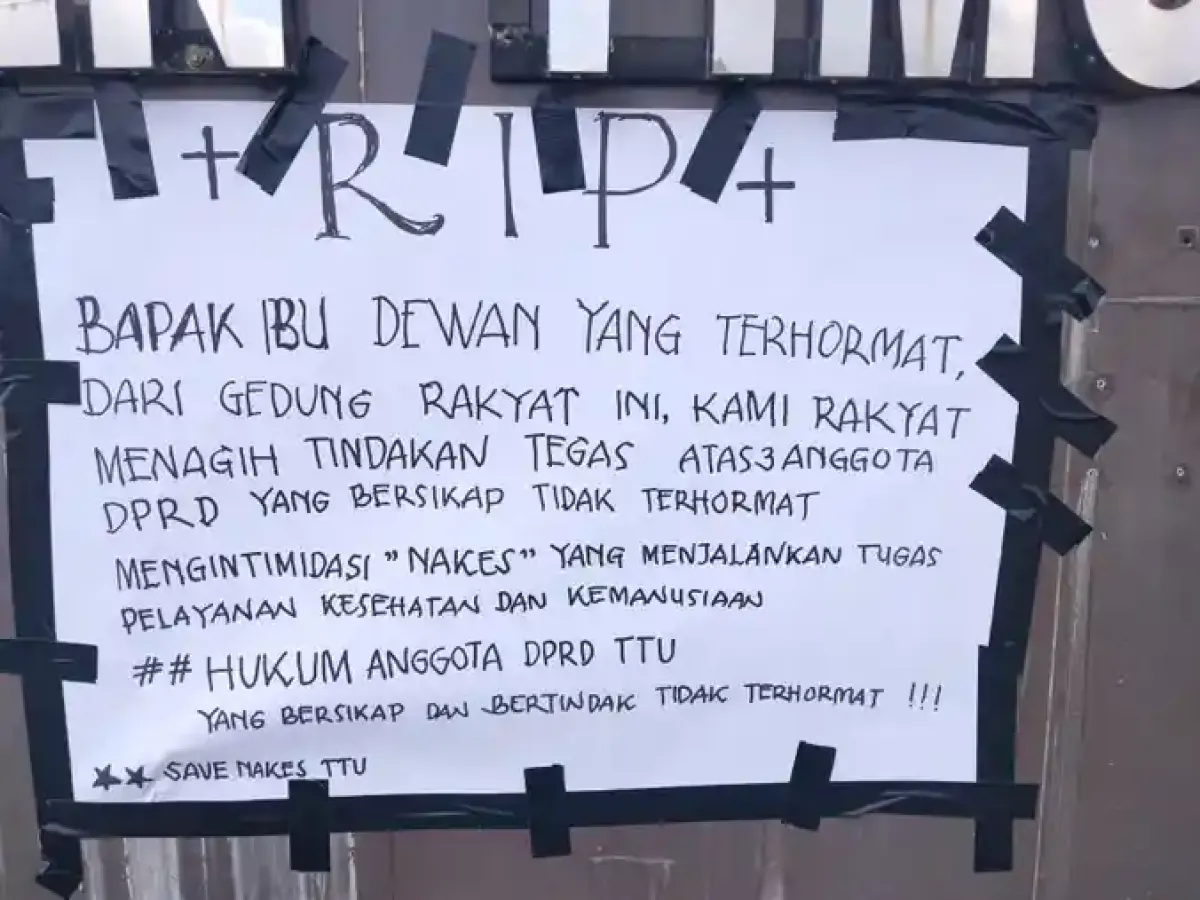 + R I P +
BAPAK IBU DEWAN YANG TERHORMAT,
DARI GEDUNG RAKYAT INI, KAMI RAKYAT
MENAGIH TINDAKAN TEGAS ATAS 3 ANGGOTA
DPRD YANG BERSIKAP TIDAK TERHORMAT
MENGINTIMIDASI "NAKES" YANG MENJALANKAN TUGAS
PELAYANAN KESEHATAN DAN KEMANUSIAAN
## HUKUM ANGGOTA DPRD TTU
YANG BERSIKAP DAN BERTINDAK TIDAK TERHORMAT !!!
★★ SAVE NAKES TTU